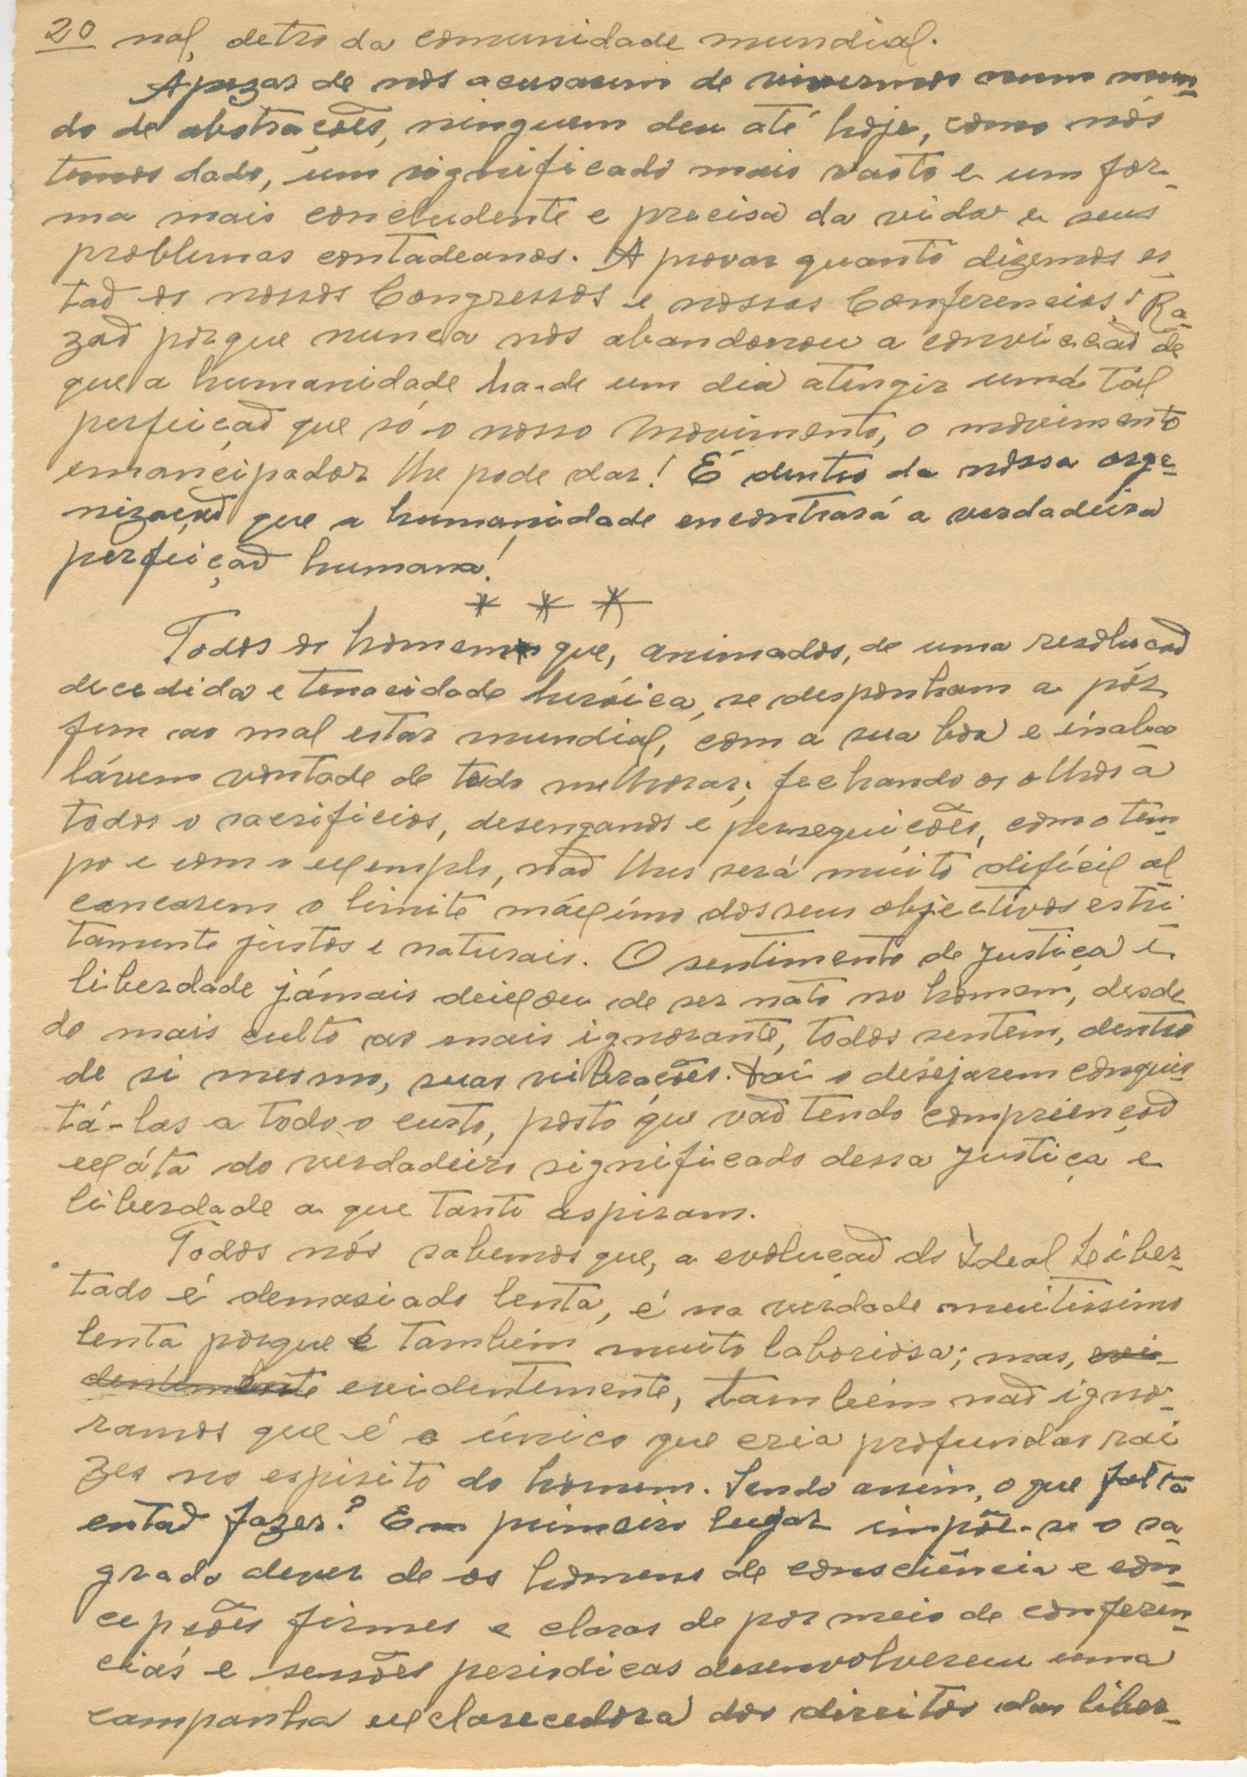 20 nal, detro da comunidade mundial.
Apezar de nos acusarem de vivermos num mun-
do de abstrações, ninguem deu até hoje, como nós
temos dado, um significado mais vasto e um for-
ma mais concludente e precisa da vida e seus
problemas contadeanos. A provar quanto dizemos es-
taõ os nossos Congressos e nossas Conferencias! Ra-
zaõ porque nunca nos abandonou a convicçaõ de
que a humanidade ha-de um dia atingir uma tál
perfeiçaõ que só o nosso Movimento, o movimento
emancipador lhe pode dar! É dentro da nossa orga-
nizaçaõ que a humanidade encontrará a verdadeira
perfeiçaõ humana!
* * *
Todos os homens que, animados, de uma resoluçaõ
decedida e tenacidade heróica, se desponham a pôr
fim ao mal estar mundial, com a sua boa e inaba-
lávem vontade de tudo melhorar; fechando os olhos a
todos o sacrificios, desenganos e perseguições, com o tem-
po e com o exemplo, naõ lhes será muito difícil al
cançarem o limite máximo dos seus objectivos estri-
tamente justos e naturais. O sentimento de justiça e
liberdade jámais deixou de ser nato no homem, desde
do mais culto ao mais ignorante, todos sentem, dentro
de si mesmo, suas vibrações. Daí o desejarem conquis-
tá-las a todo o custo, posto que vaõ tendo compriençaõ
exáta do verdadeiro significado dessa justiça e
liberdade a que tanto aspiram.
Todos nós sabemos que, a evoluçaõ do Ideal Liber-
tado é demasiado lenta, é na verdade muitissimo
lenta porque é tambêm muito laboriosa; mas, evi-
dentemente evidentemente, tambêm naõ igno-
ramos que é o único que cria profundas rai
zes no espirito do homem. Sendo assim, o que falta
entaõ fazer? Em primeiro lugar impõe-se o sa
grado dever de os homens de consciência e con-
cepções firmes e claras de por meio de conferen-
ciás e sensões periodicas desenvolverem uma
campanha exclarecedora dos direitos das liber-